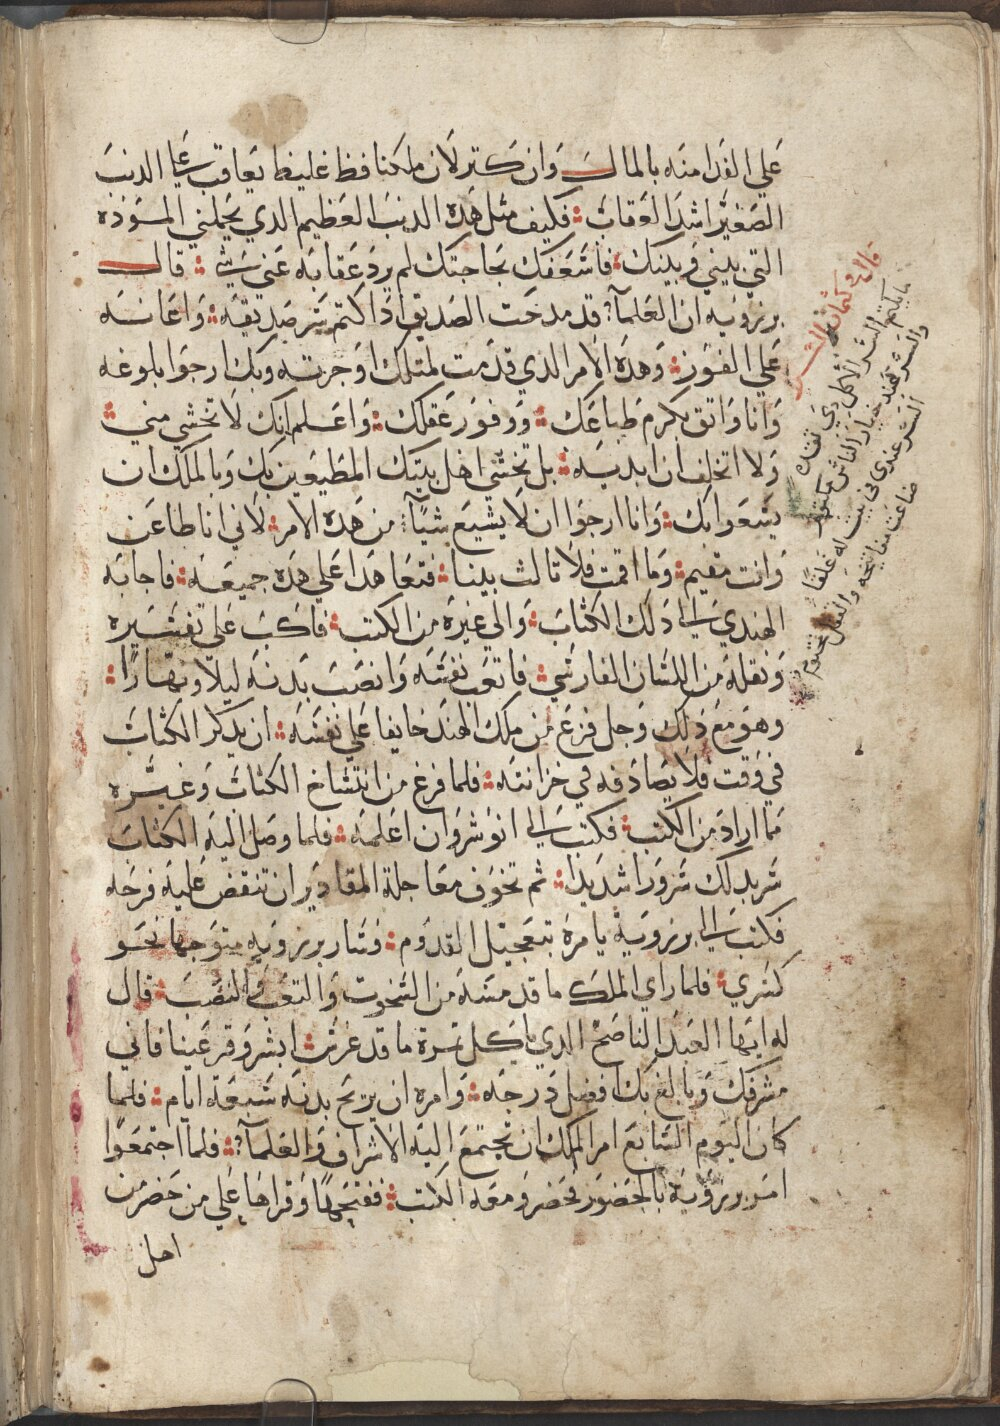 علي الفدا منه بالمال وان كتر لان ملكنا فظ غليظ يعاقب علي الدنب
الصغير اشد العقاب فكيف مثل هذه الدنب العظيم الدي يحملني المودة
التي بيني وبينك فاشعفك بحاجتك لم يرد عقابه عني شي قال
برزويه ان العلمآ قد مدحت الصديق ادا كتم سر صديقه واعانه
علي الفوز وهده الامر الدي قدمت لمتلك اوخرته وبك ارجوا بلوغه
وانا واتق بكرم طباعك ووفور عقلك واعلم انك لا تخشي مني
ولا اتخلف ان ابديه بل تخشي اهل بيتك المطيعين بك وبالملك ان
يسعوا بك وانا ارجوا ان لا يشيع شيآ من هده الامر لاني انا ظاعن
وانت مقيم وما اقمت فلا تالت بيننا فتعاهدا علي هده جميعه فاجابه
الهندي الي دلك الكتاب والي غيره من الكتب فاكب علي تفسيره
ونقله من اللسان الفارسي فاتعب نفسه وانصب بدنه ليلا ونهارا
وهو مع دلك وجل فزع من ملك الهند خايفا علي نفسه ان يدكر الكتاب
في وقت فلا يصادفه في خزانته فلما فرغ من انتساخ الكتاب وغيره
مما اراد من الكتب فكتب الي انوشروان اعلمه فلما وصل اليه الكتاب
سر بدلك سرورا شديدا تم تخوف معاجلة المقادير ان تنقض عليه فرحه
فكتب الي برزويه يامره بتعجيل القدوم فسار برزويه متوجها نحو
كسري فلما راي الملك ما قد مسه من الشحوت والتعب والنصب قال
له ايها العبد الناصح الدي ياكل تمرة ما قد غرس ابشر وقر عينا فاني
مشرفك وبالغ بك افضل درجه وامره ان يريح بدنه سبعة ايام فلما
كان اليوم السابع امر الملك ان تجتمع اليه الاشراف والعلمآ فلما اجتمعوا
امر برزويه بالحضور فحضر ومعه الكتب ففتحها وقراها علي من حضر من
اهل
قال في كتمان السر
ما يكتم السر الا كل دي ثقه
والسر عند خيار الناس مكتوم
السر عندي في بيت له غلقا
ضاعت مفاتيحه والقفل مختوم